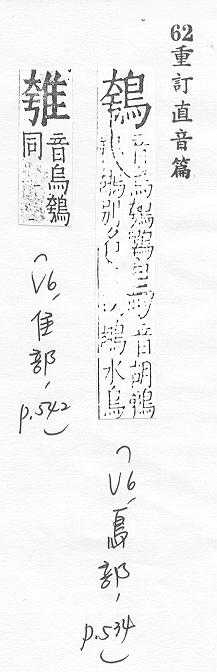 62重訂直音篇
鴮
音烏鴮鸅又音胡鴮
鸅別名鶘水鳥
(V6, 鳥部, p.534)
音烏鴮
同
(V6, 隹部, p.542)